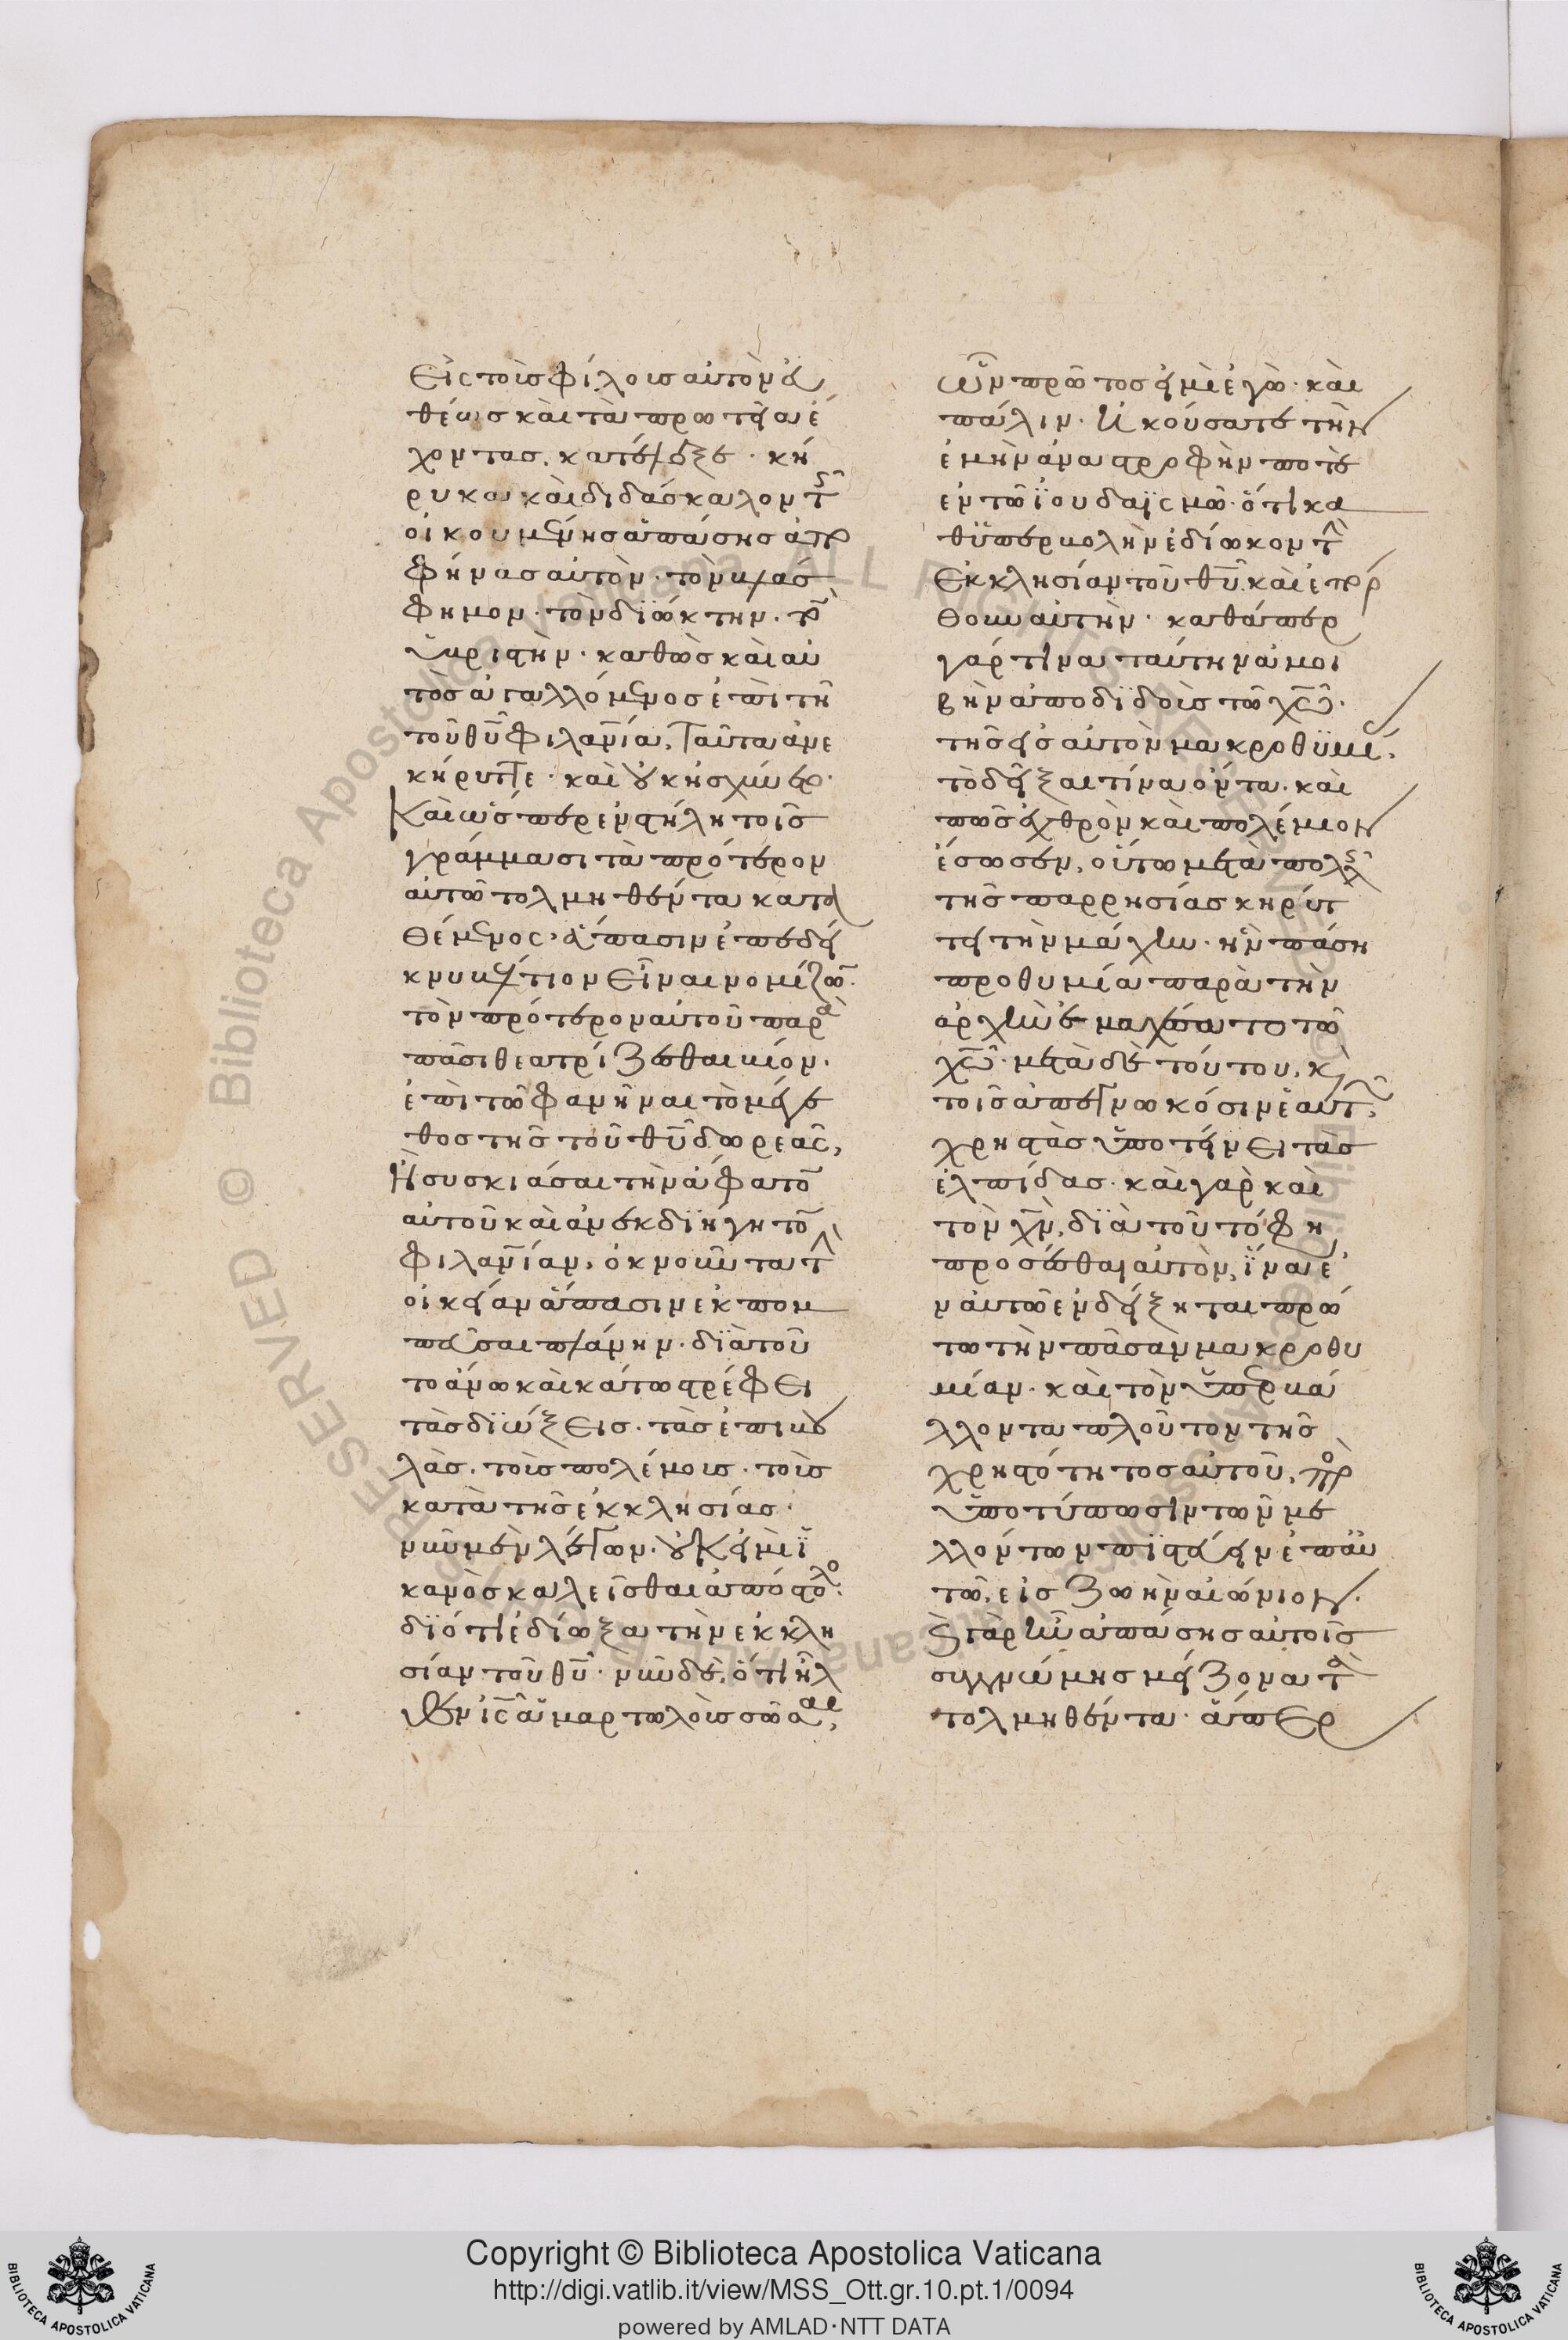 Εἰς τοὺς φίλους αὐτὸν ἀ
θέως καὶ τὰ πρωτεῖα ἔ
χοντας κατέλεξε· κή
ρυκα καὶ διδάσκαλον τῆς
οἰκουμένης ἁπάσης ἀπο
φήνας αὐτὸν· τὸν βλάσ
φημον· τὸν διώκτην· τὸν
ὑβριστὴν· καθὼς καὶ αὐ
τὸς ἀγαλλόμενος ἐπὶ τῇ
τοῦ θῦ φιλανίᾳ, ταῦτα ἀνε
κήρυττε· καὶ οὐκ ᾐσχύνετο·
Καὶ ὥσπερ ἐν στήλῃ τοῖς
γράμμασι τὰ πρότερον
αὐτῷ τολμηθέντα κατα
θέμενος, ἅπασιν ἐπεδεί
κνυ βέλτιον εἶναι νομίζων
τὸν πρότερον αὐτοῦ παρὰ
πᾶσι θεατρίζεσθαι βίον·
ἐπὶ τῷ φανῆναι τὸ μέγε
θος τῆς τοῦ θῦ δωρεᾶς,
ἢ συσκιάσαι τὴν ἄφατον
αὐτοῦ καὶ ἀνεκδιήγητον
φιλανίαν, ὀκνοῦντα τὴν
οἰκείαν ἅπασιν ἐκπομ
πεῦσαι πλάνην· διὰ τοῦ
το ἄνω καὶ κάτω στρέφει
τὰς διώξεις· τὰς ἐπιβου
λὰς· τοὺς πολέμους· τοὺς
κατὰ τῆς ἐκκλησίας·
νῦν μὲν λέγων· οὐκ εἰμὶ ἱ
κανὸς καλεῖσθαι ἀπόστολος·
διότι ἐδίωξα τὴν ἐκκλη
σίαν τοῦ θῦ· νῦν δὲ, ὅτι ἦλ
θεν ις ἁμαρτωλοὺς σῶσαι,
ὧν πρῶτος εἰμὶ ἐγὼ· καὶ
πάλιν· ἠκούσατε τὴν
ἐμὴν ἀναστροφὴν ποτὲ
ἐν τῷ ἰουδαϊσμῷ· ὅτι κα
θ' ὑπερβολὴν ἐδίωκον τὴν
ἐκκλησίαν τοῦ θῦ. καὶ ἐπόρ
θουν αὐτὴν· καθάπερ
γάρ τινα ταύτην ἀμοι
βὴν ἀποδιδοὺς τῷ χῶ·
τῆς εἰς αὐτὸν μακροθυμί,
τὸ δεῖξαι τίνα ὄντα· καὶ
πῶς ἐχθρὸν καὶ πολέμιον
ἔσωσεν, οὕτω μετὰ πολλῆς
τῆς παρρησίας κηρύτ
τει τὴν μάχην· ἣν πάσῃ
προθυμίᾳ παρὰ τὴν
ἀρχὴν ἐμαχέσατο τῷ
χῶ· μετὰ δὲ τούτου, καὶ
τοῖς ἀπεγνωκόσιν ἑαυτῶν,
χρηστὰς ὑποτείνει τὰς
ἐλπίδας· καὶ γὰρ καὶ
τὸν χν, διὰ τοῦτό φη
προσέσθαι αὐτὸν, ἵνα ἐ
ν αὐτῷ ἐνδείξηται πρώ
τω τὴν πᾶσαν μακροθυ
μίαν· καὶ τὸν ὑπερβά
λλοντα πλοῦτον τῆς
χρηστότητος αὐτοῦ, πρὸς
ὑποτύπωσιν τῶν με
λλόντων πιστεύειν ἐπ' αὐ
τῷ, εἰς ζωὴν αἰώνιον·
καὶ γὰρ ἦν ἁπάσης αὐτοῖς
συγγνώμης μείζονα τὰ
τολμηθέντα· ἅπερ
Copyright © Biblioteca Apostolica Vaticana
http://digi.vatlib.it/view/MSS_Ott.gr.10.pt.1/0094
powered by AMLAD·NTT DATA